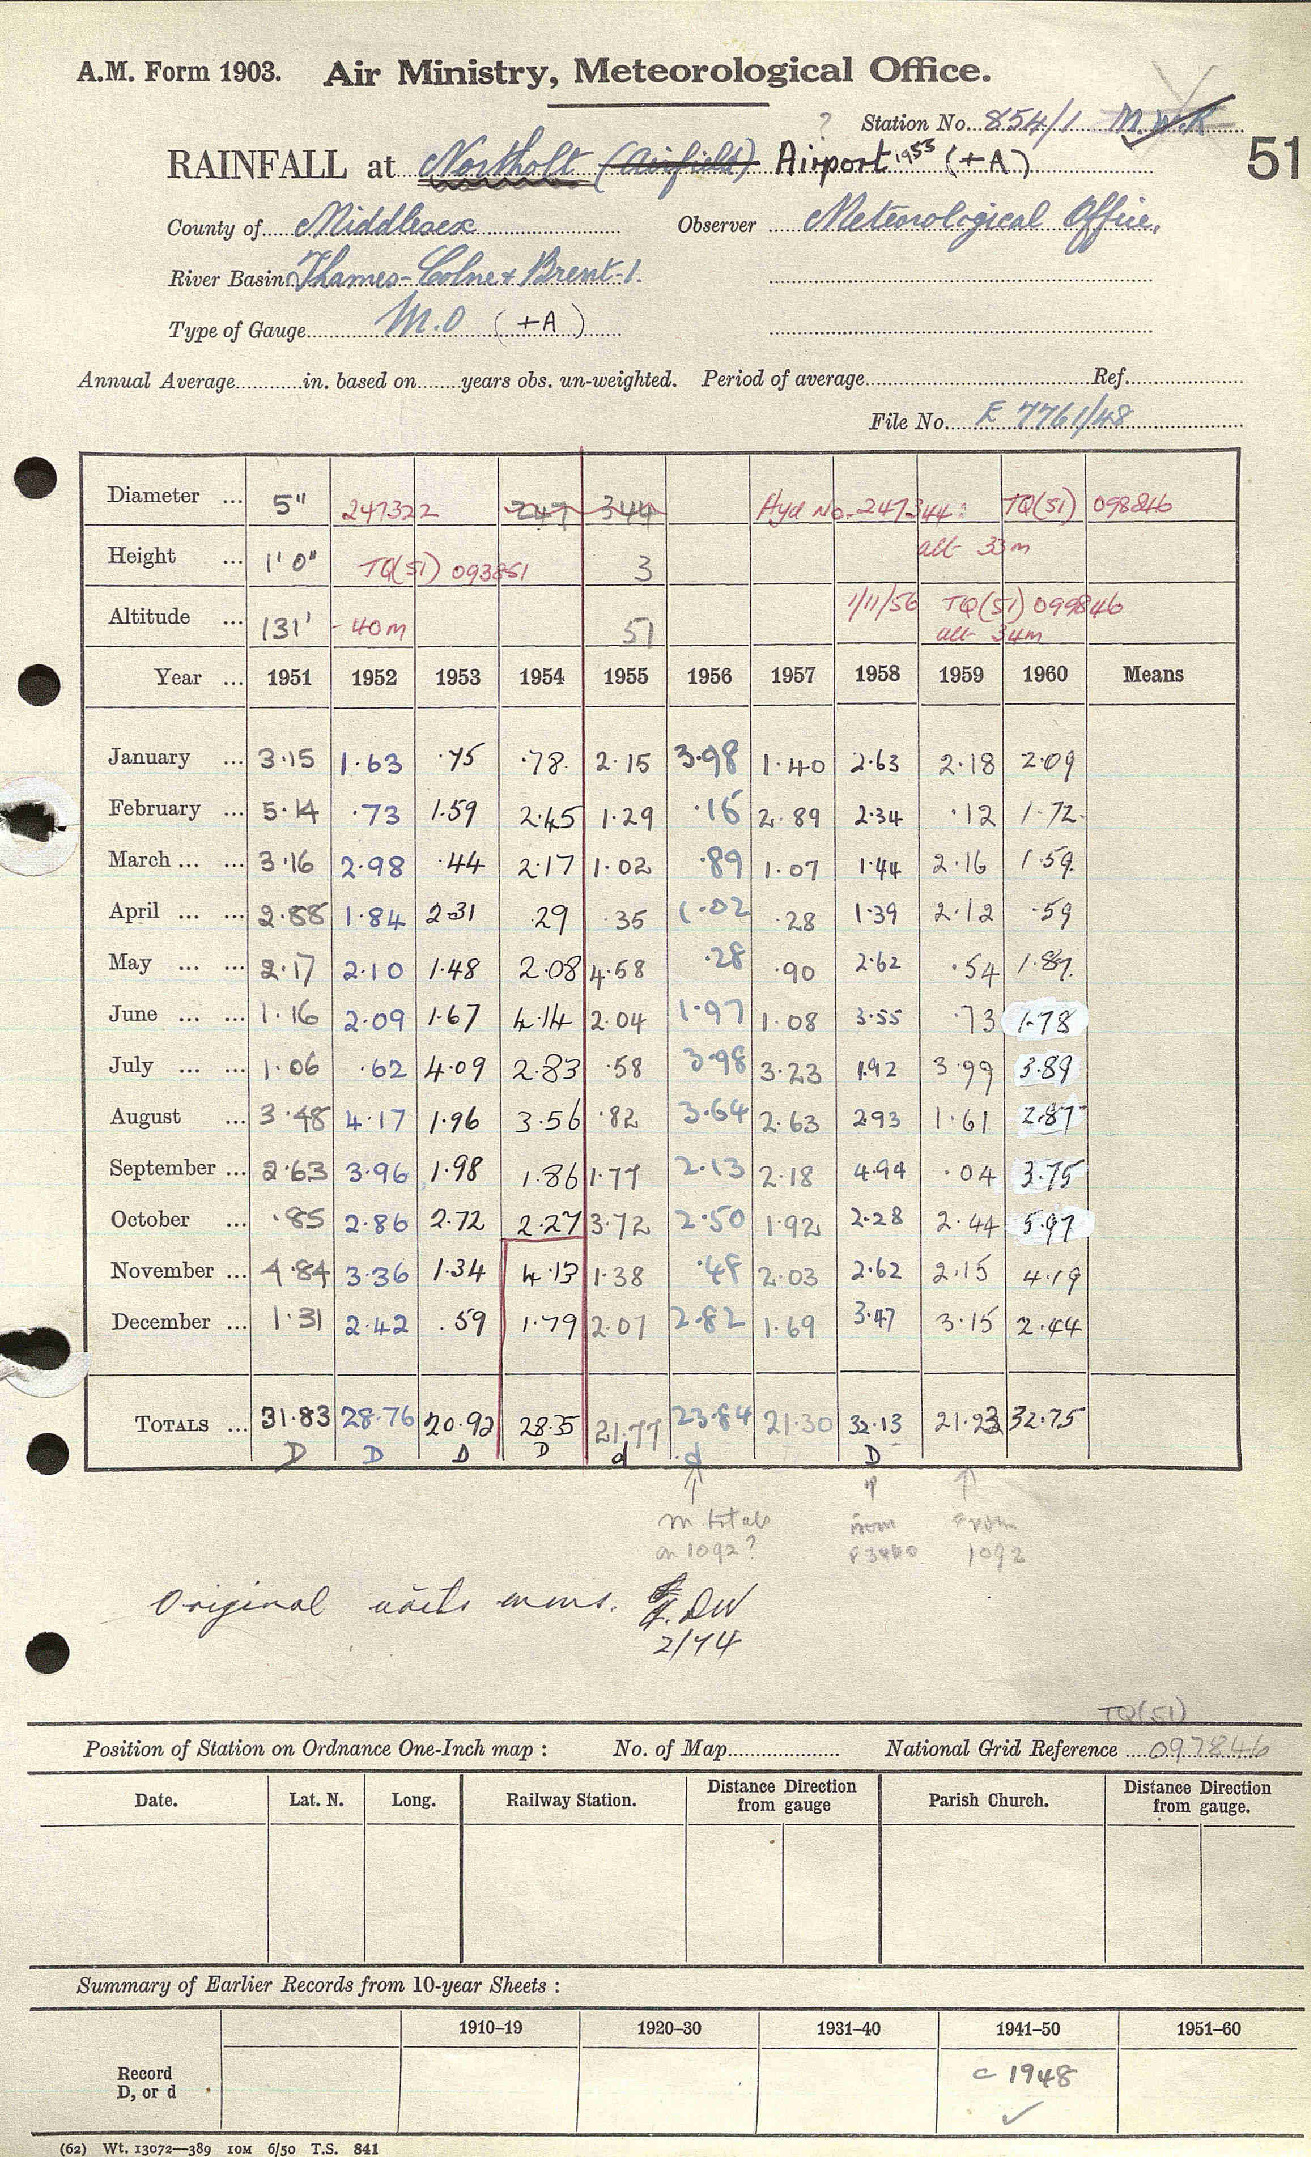 A.M. Form 1903. Air Ministry, Meteorological Office.
? Station No. 854/1 M.W.R
RAINFALL at Northolt (Airfield) Airport 1955 (+A) 51
County of Middlesex Observer Meteorological Office,
River Basin Thames-Colne + Brent-1.
Type of Gauge M.O (+A)
Annual Average in. based on years obs. un-weighted. Period of average Ref.
File No. E 7761/48
Diameter ... 5" 247322 247 344 Hyd No. 247344: TQ(51) 098846
alt 33m
Height ... 1' 0" TQ(51) 093851 3
1/11/56 TQ(51) 099846
Altitude ... 131' - 40m 51 alt 34m
Year ... 1951 1952 1953 1954 1955 1956 1957 1958 1959 1960 Means
January ... 3.15 1.63 .75 .78 2.15 3.98 1.40 2.63 2.18 2.09
February ... 5.14 .73 1.59 2.45 1.29 .16 2.89 2.34 .12 1.72
March ... ... 3.16 2.98 .44 2.17 1.02 .89 1.07 1.44 2.16 1.59
April ... ... 2.88 1.84 2.31 .29 .35 1.02 .28 1.39 2.12 .59
May ... ... 2.17 2.10 1.48 2.08 4.58 .28 .90 2.62 .54 1.87
June ... ... 1.16 2.09 1.67 4.14 2.04 1.97 1.08 3.55 .73 1.78
July ... ... 1.06 .62 4.09 2.83 .58 3.98 3.23 1.92 3.99 3.89
August ... 3.48 4.17 1.96 3.56 .82 3.64 2.63 2.93 1.61 2.87
September ... 2.63 3.96 1.98 1.86 1.77 2.13 2.18 4.94 .04 3.75
October ... .85 2.86 2.72 2.27 3.72 2.50 1.92 2.28 2.44 5.97
November ... 4.84 3.36 1.34 4.13 1.38 .48 2.03 2.62 2.15 4.19
December ... 1.31 2.42 .59 1.79 2.07 2.82 1.69 3.47 3.15 2.44
TOTALS ... 31.83 28.76 20.92 28.35 21.77 23.84 21.30 32.13 21.23 32.75
D D D D d d D
m totals from from
on 1092? 1092
Original units mms. DW
2/74
TQ(51)
Position of Station on Ordnance One-Inch map : No. of Map National Grid Reference 097846
Date. Lat. N. Long. Railway Station. Distance Direction from gauge Parish Church. Distance Direction from gauge.
Summary of Earlier Records from 10-year Sheets :
1910–19 1920–30 1931–40 1941–50 1951–60
Record
D, or d c 1948
(62) Wt. 13072—389 10M 6/50 T.S. 841